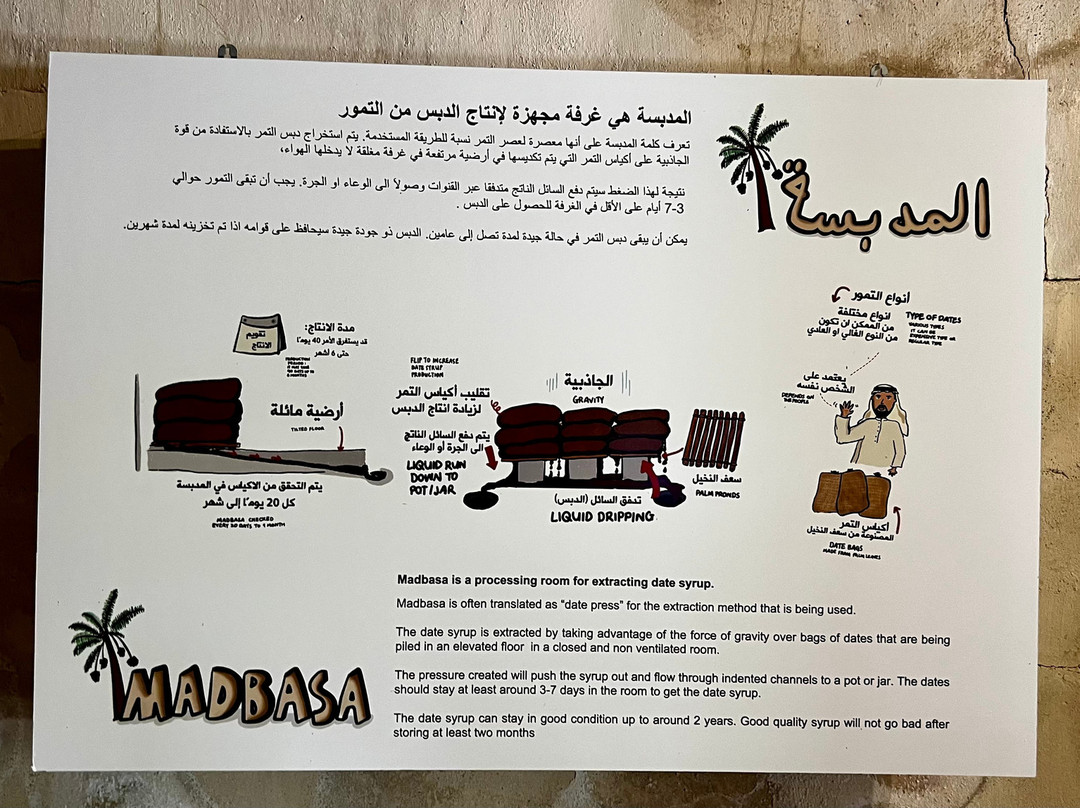 المدبسة هي غرفة مجهزة لإنتاج الدبس من التمور
تعرف كلمة المدبسة على أنها معصرة لعصر التمر نسبة للطريقة المستخدمة. يتم استخراج دبس التمر بالاستفادة من قوة
الجاذبية على أكياس التمر التي يتم تكديسها في أرضية مرتفعة في غرفة مغلقة لا يدخلها الهواء،
نتيجة لهذا الضغط سيتم دفع السائل الناتج متدفقا عبر القنوات وصولاً الى الوعاء او الجرة. يجب أن تبقى التمور حوالي
3-7 أيام على الأقل في الغرفة للحصول على الدبس .
يمكن أن يبقى دبس التمر في حالة جيدة لمدة تصل إلى عامين. الدبس ذو جودة جيدة سيحافظ على قوامه اذا تم تخزينه لمدة شهرين.
المدبسة
أنواع التمور
انواع مختلفة
من الممكن ان تكون
من النوع الغالي او العادي
TYPE OF DATES
VARIOUS TYPES
IT CAN BE
EXPENSIVE TYPE OR
REGULAR TYPE
يعتمد على
الشخص نفسه
DEPENDS ON
THE PEOPLE
أكياس التمر
المصنوعة من سعف النخيل
DATE BAGS
MADE FROM PALM LEAVES
الجاذبية
GRAVITY
FLIP TO INCREASE
DATE SYRUP
PRODUCTION
تقليب أكياس التمر
لزيادة انتاج الدبس
يتم دفع السائل الناتج
الى الجرة أو الوعاء
LIQUID RUN
DOWN TO
POT/JAR
سعف النخيل
PALM FRONDS
تدفق السائل (الدبس)
LIQUID DRIPPING
تقويم
الانتاج
مدة الانتاج:
قد يستغرق الأمر 40 يومًا
حتى 6 أشهر
PRODUCTION
PERIOD:
أرضية مائلة
TILTED FLOOR
يتم التحقق من الاكياس في المدبسة
كل 20 يومًا إلى شهر
MADBASA CHECKED
EVERY 20 DAYS TO 1 MONTH
MADBASA
Madbasa is a processing room for extracting date syrup.
Madbasa is often translated as “date press” for the extraction method that is being used.
The date syrup is extracted by taking advantage of the force of gravity over bags of dates that are being
piled in an elevated floor in a closed and non ventilated room.
The pressure created will push the syrup out and flow through indented channels to a pot or jar. The dates
should stay at least around 3-7 days in the room to get the date syrup.
The date syrup can stay in good condition up to around 2 years. Good quality syrup will not go bad after
storing at least two months